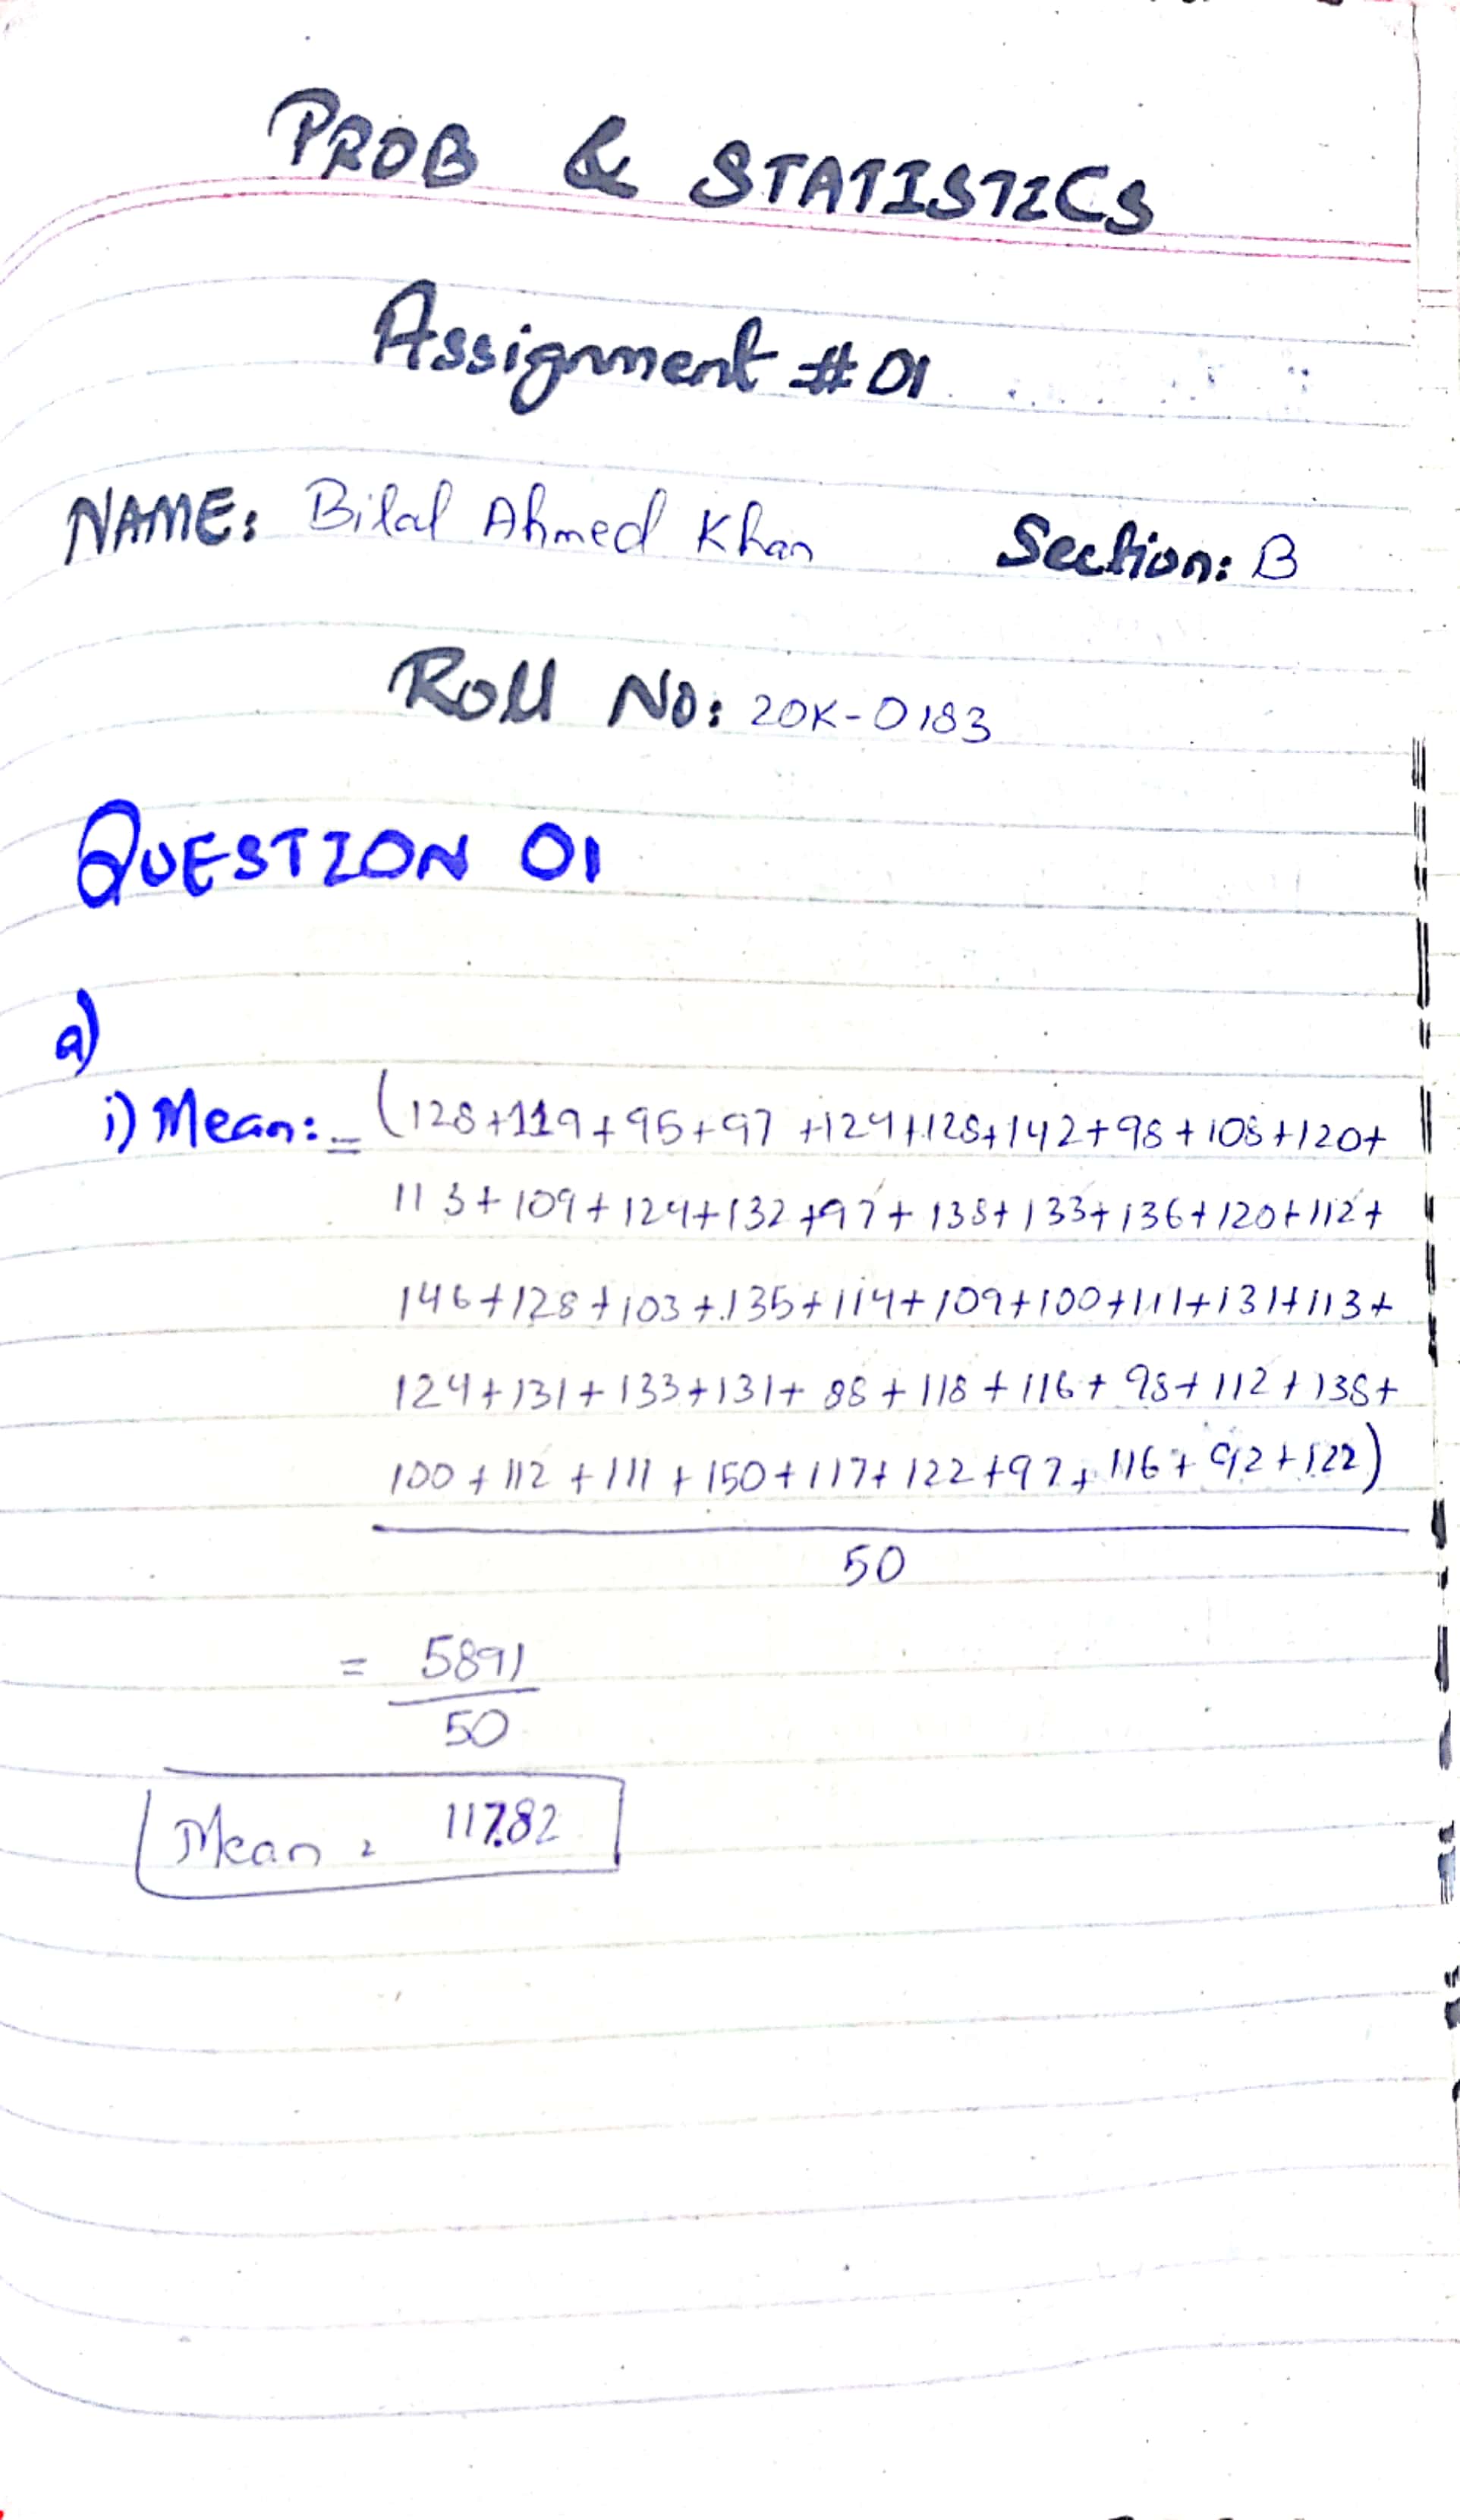 PROB & STATISTICS
Assignment #01
NAME: Bilal Ahmed Khan Section: B
Roll No: 20K-0183
QUESTION 01
a)
i) Mean: = (128+119+95+97+124+128+142+98+108+120+
113+109+124+132+97+138+133+136+120+112+
146+128+103+135+114+109+100+111+131+113+
124+131+133+131+88+118+116+98+112+138+
100+112+111+150+117+122+97+116+92+122)
50
= 5891
50
Mean = 117.82